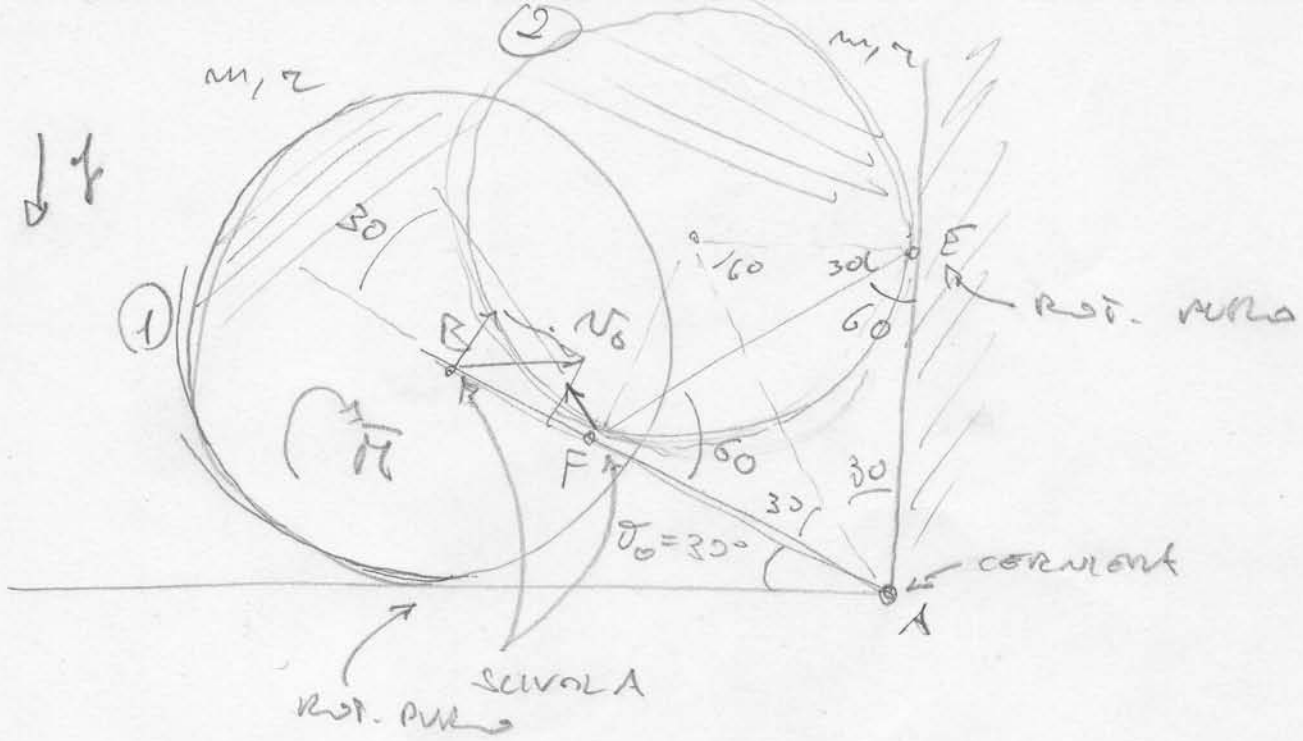 2
m, r
m, r
g
30
60
30
E
ROT. PURO
60
1
B
v₀
M
F
60
30
30
ϑ₀ = 30°
CERNIERA
A
SCIVOLA
ROT. PURO